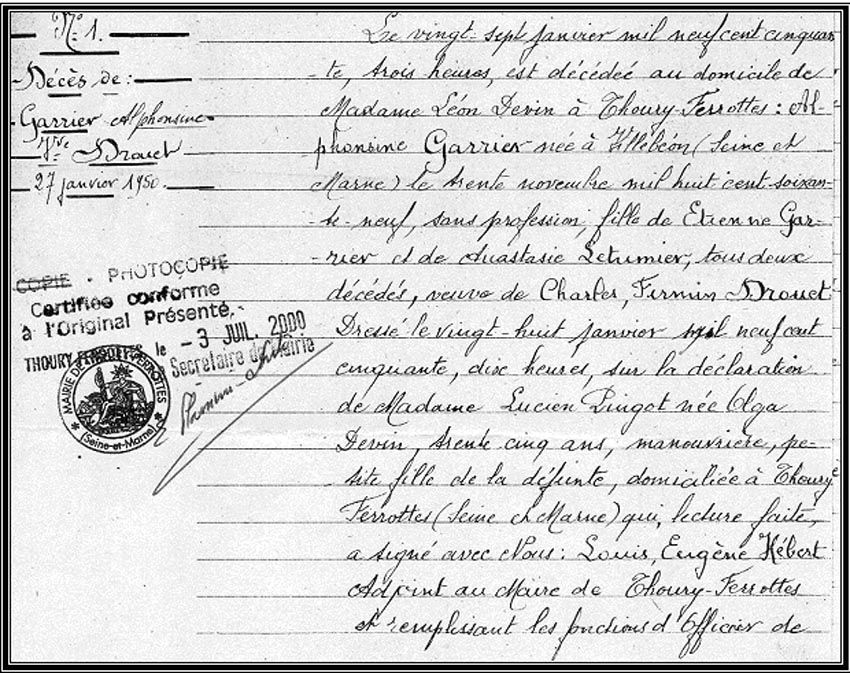 N° 1.
Décès de :
Garrier Alphonsine
Vve Drouet
27 janvier 1950.
COPIE - PHOTOCOPIE
Certifiée conforme
à l'Original Présenté.
THOURY FERROTTES le - 3 JUIL. 2000
Secrétaire de Mairie
MAIRIE DE THOURY-FERROTTES
(Seine-et-Marne)
Le vingt-sept janvier mil neuf cent cinquan
-te, trois heures, est décédée au domicile de
Madame Léon Devin à Thoury-Ferrottes : Al-
phonsine Garrier née à Villebéon (Seine et
Marne) le trente novembre mil huit cent soixan-
-te-neuf, sans profession, fille de Etienne Gar-
-rier et de Anastasie Letumier, tous deux
décédés, veuve de Charles, Firmin Drouet
Dressé le vingt-huit janvier mil neuf cent
cinquante, dix heures, sur la déclaration
de Madame Lucien Pingot née Olga
Devin, trente cinq ans, manouvrière, pe-
tite fille de la défunte, domiciliée à Thoury
Ferrottes (Seine et Marne) qui, lecture faite,
a signé avec Nous : Louis, Eugène Hébert
Adjoint au Maire de Thoury-Ferrottes
et remplissant les fonctions d'Officier de